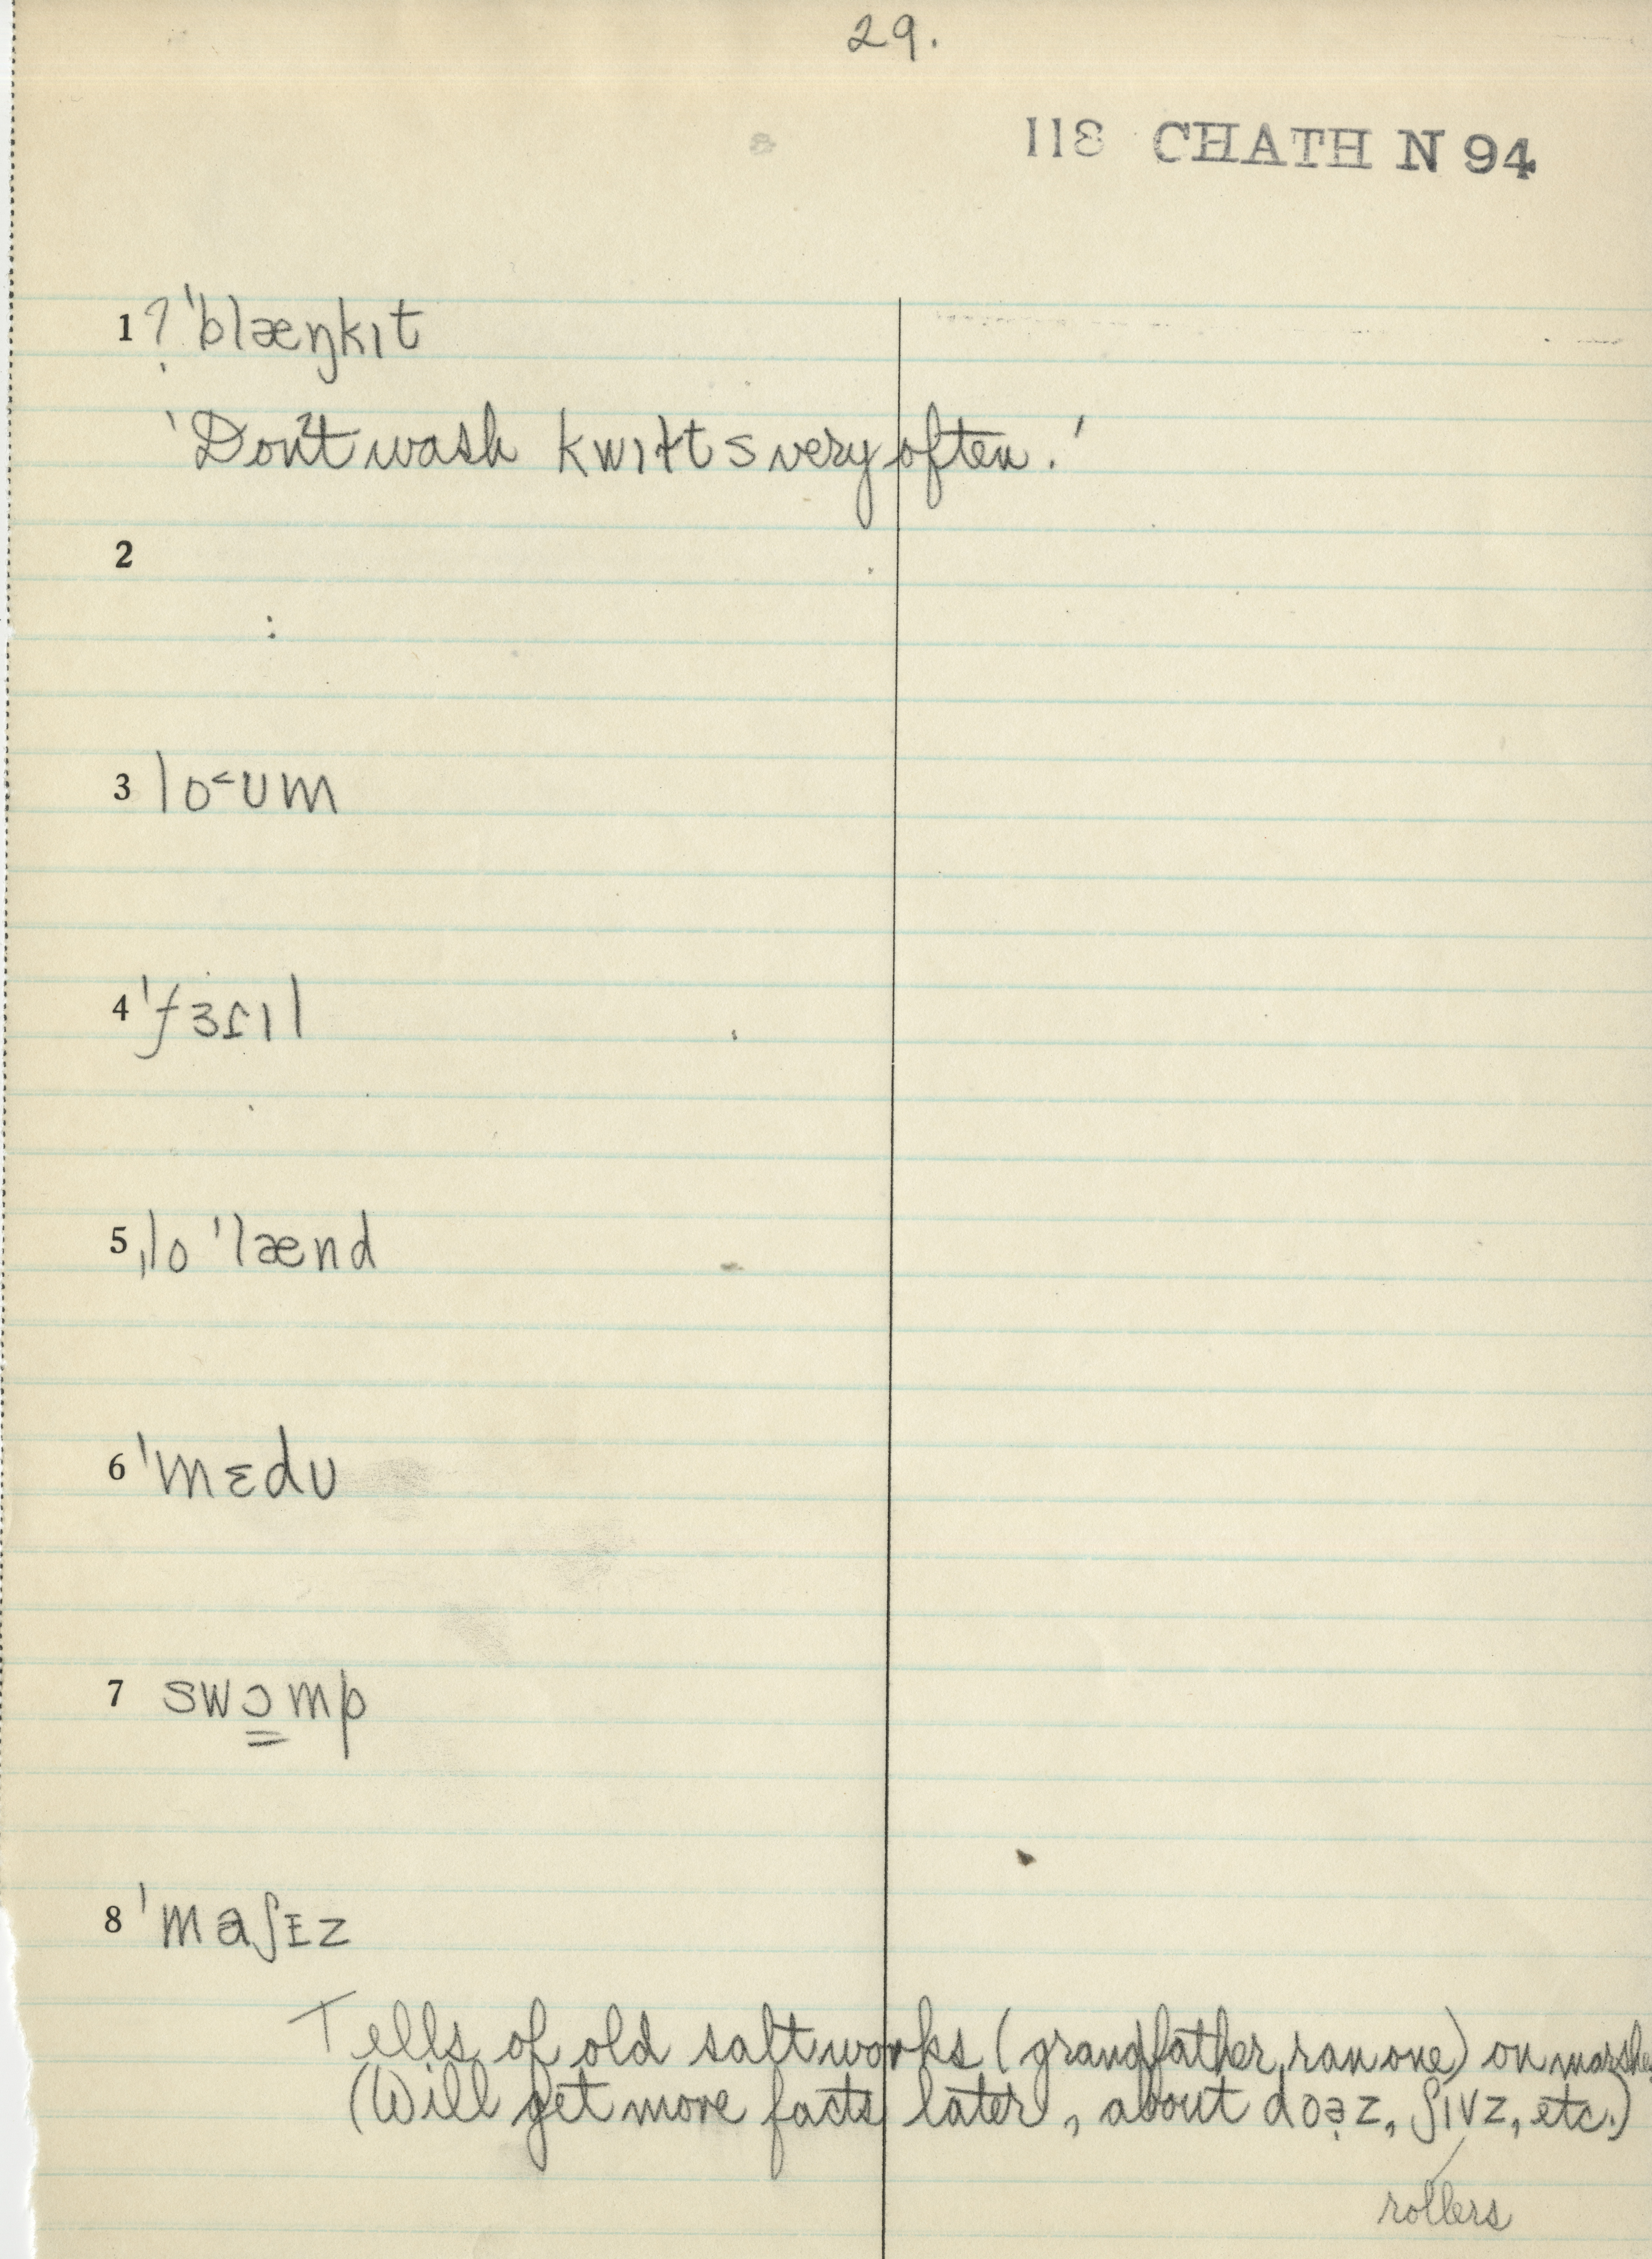 29.
118 CHATH N 94
1 ? ˈblæŋkɪt
'Don't wash kwɪɫts very often.'
2
3 lo˂ʊm
4 ˈfɜɾɪl
5 ˌloˈlænd
6 ˈmɛdʊ
7 swɔ̳mp
8 ˈmaʃɪz
Tells of old saltworks (grandfather ran one) on marshes
(Will get more facts later, about doə̣z, ʃɪvz, etc.)
rollers